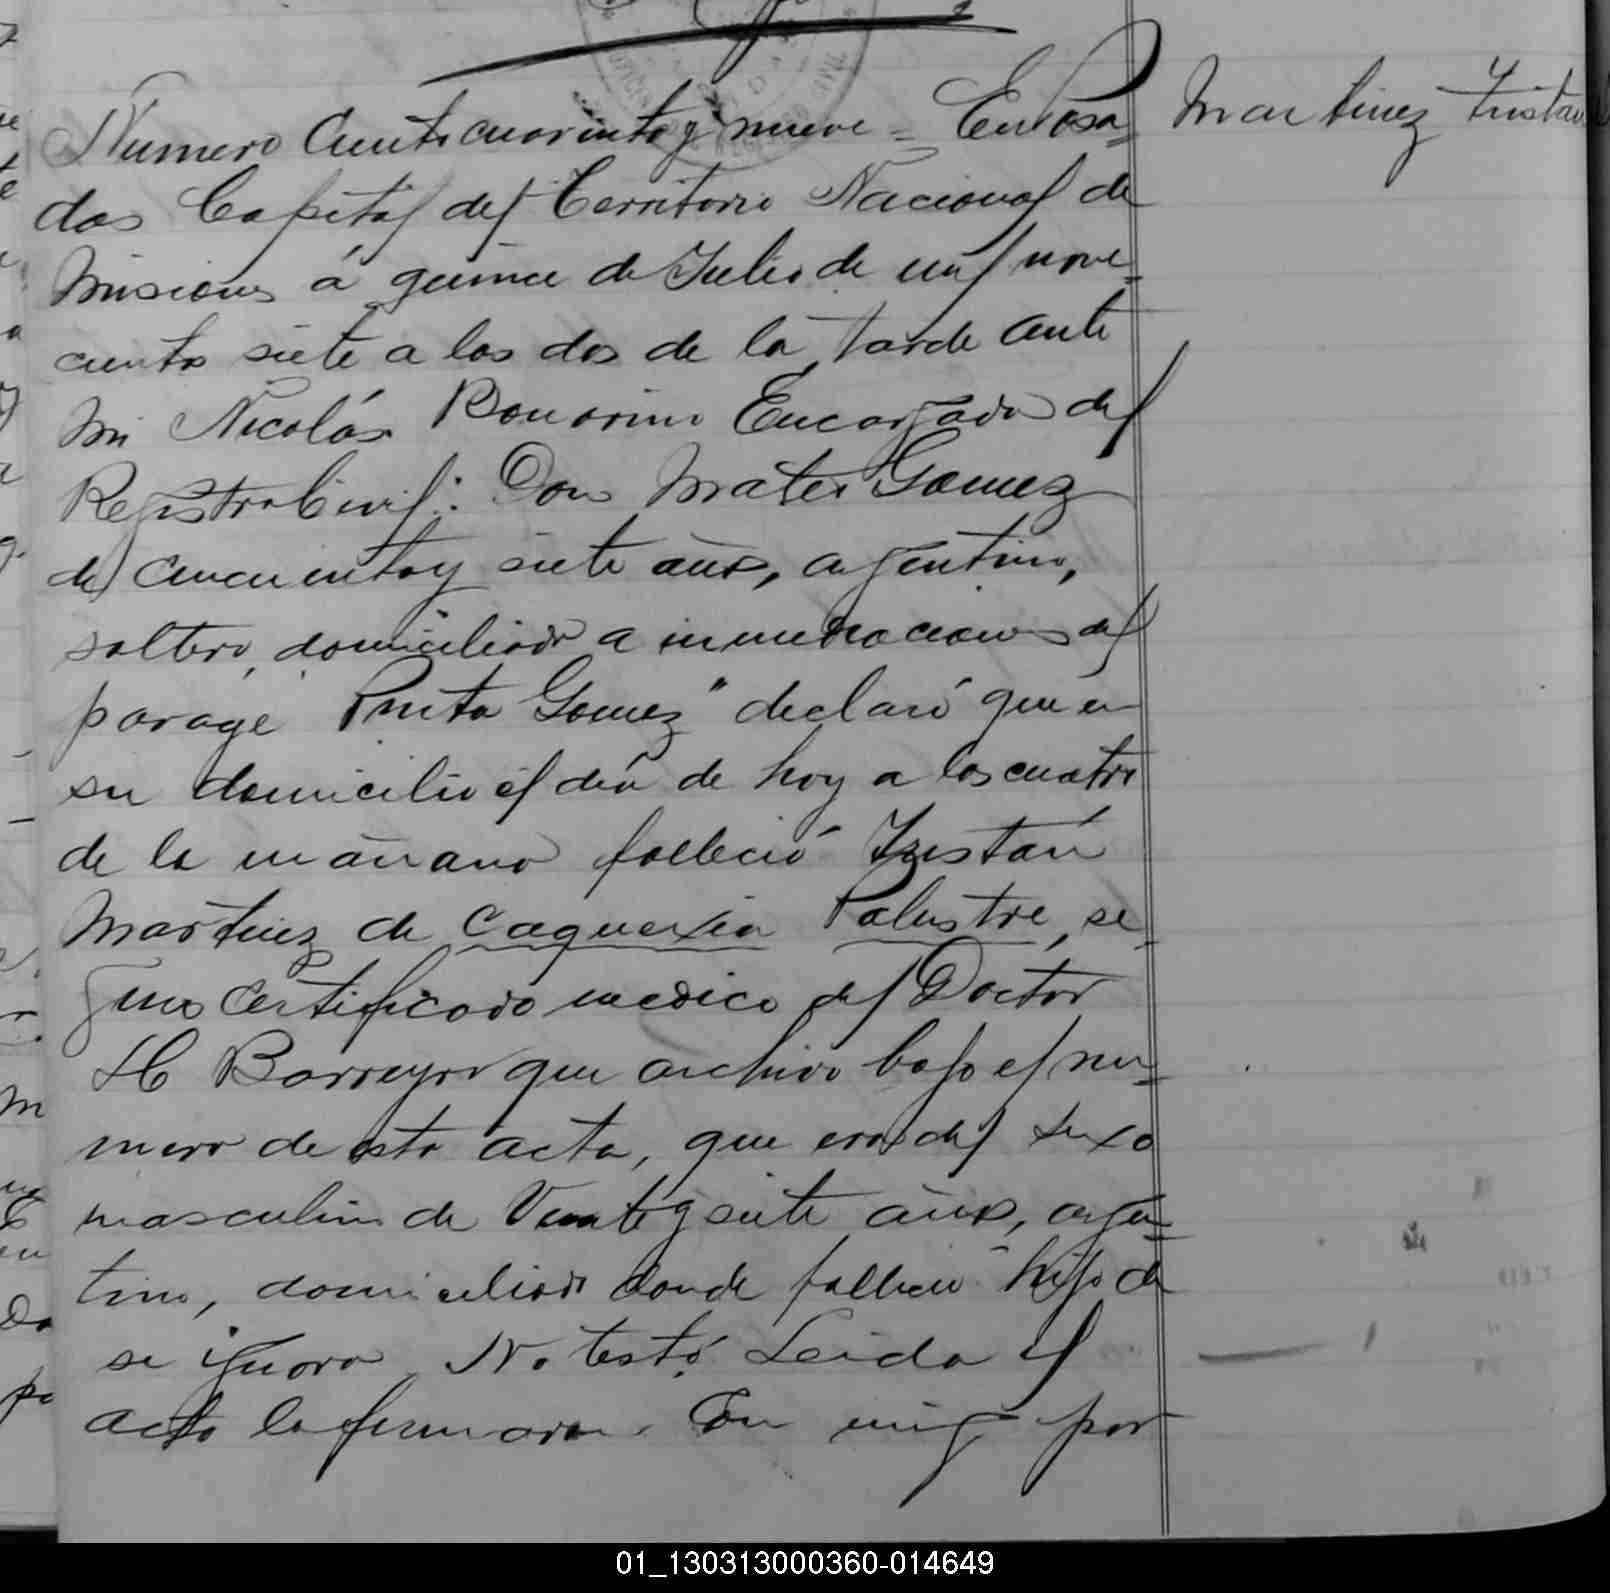 Martinez Tristan
Numero Ciento cuarenta y nueve = En Posa=
das Capital del Territorio Nacional de
Misiones á quince de Julio de mil nove=
cientos siete a las dos de la tarde ante
mi Nicolás Bonorino Encargado del
Registro Civil: Don Mateo Gomez
de cincuenta y siete años, argentino,
soltero, domiciliado a inmediaciones del
parage "Punta Gomez" declaró que en
su domicilio el día de hoy a las cuatro
de la mañana falleció Tristán
Martinez de Caquexia Palustre, se=
gun certificado medico del Doctor
H Barreyro que archivo bajo el nu=
mero de esta acta, que era del sexo
masculino de Veinte y siete años, argen=
tino, domiciliado donde falleció hijo de
se ignora. No testó. Leida el
acta la firmaron Con mig por
01_130313000360-014649